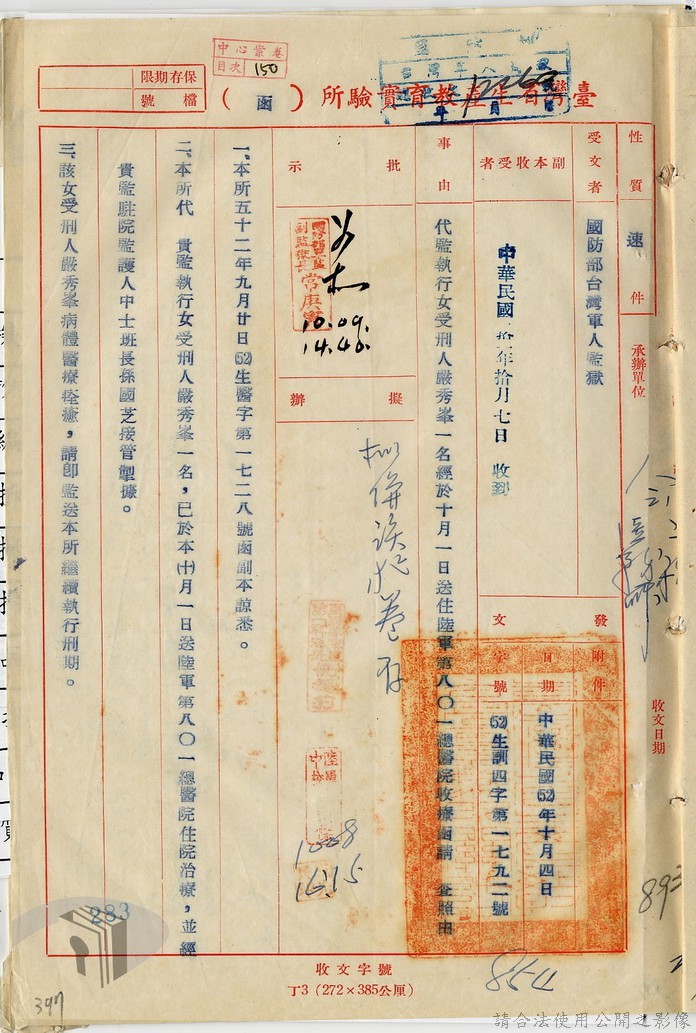 中心案卷
目次 150
保存期限
檔號
臺灣省生產教育實驗所(函)
性質
速件
承辦單位
受文者
國防部台灣軍人監獄
副本收受者
中華民國 拾月七日 收到
發文
附件
日期
中華民國(52)年十月四日
字號
(52)生訓四字第一七九二號
收文日期
事由
代監執行女受刑人嚴秀峯一名經於十月一日送住陸軍第八〇一總醫院收療函請 查照由
批示
副監獄長
常庚
10.09.
14.40.
擬辦
擬併該犯卷存
1008
16.15
一、本所五十二年九月廿日(52)生醫字第一七二八號函副本諒悉。
二、本所代 貴監執行女受刑人嚴秀峯一名,已於本(十)月一日送陸軍第八〇一總醫院住院治療,並經
貴監駐院監護人中士班長孫國芝接管掣據。
三、該女受刑人嚴秀峯病體醫療痊癒,請卽監送本所繼續執行刑期。
收文字號
丁3(272×385公厘)
8554
893
283
347
請合法使用公開之影像